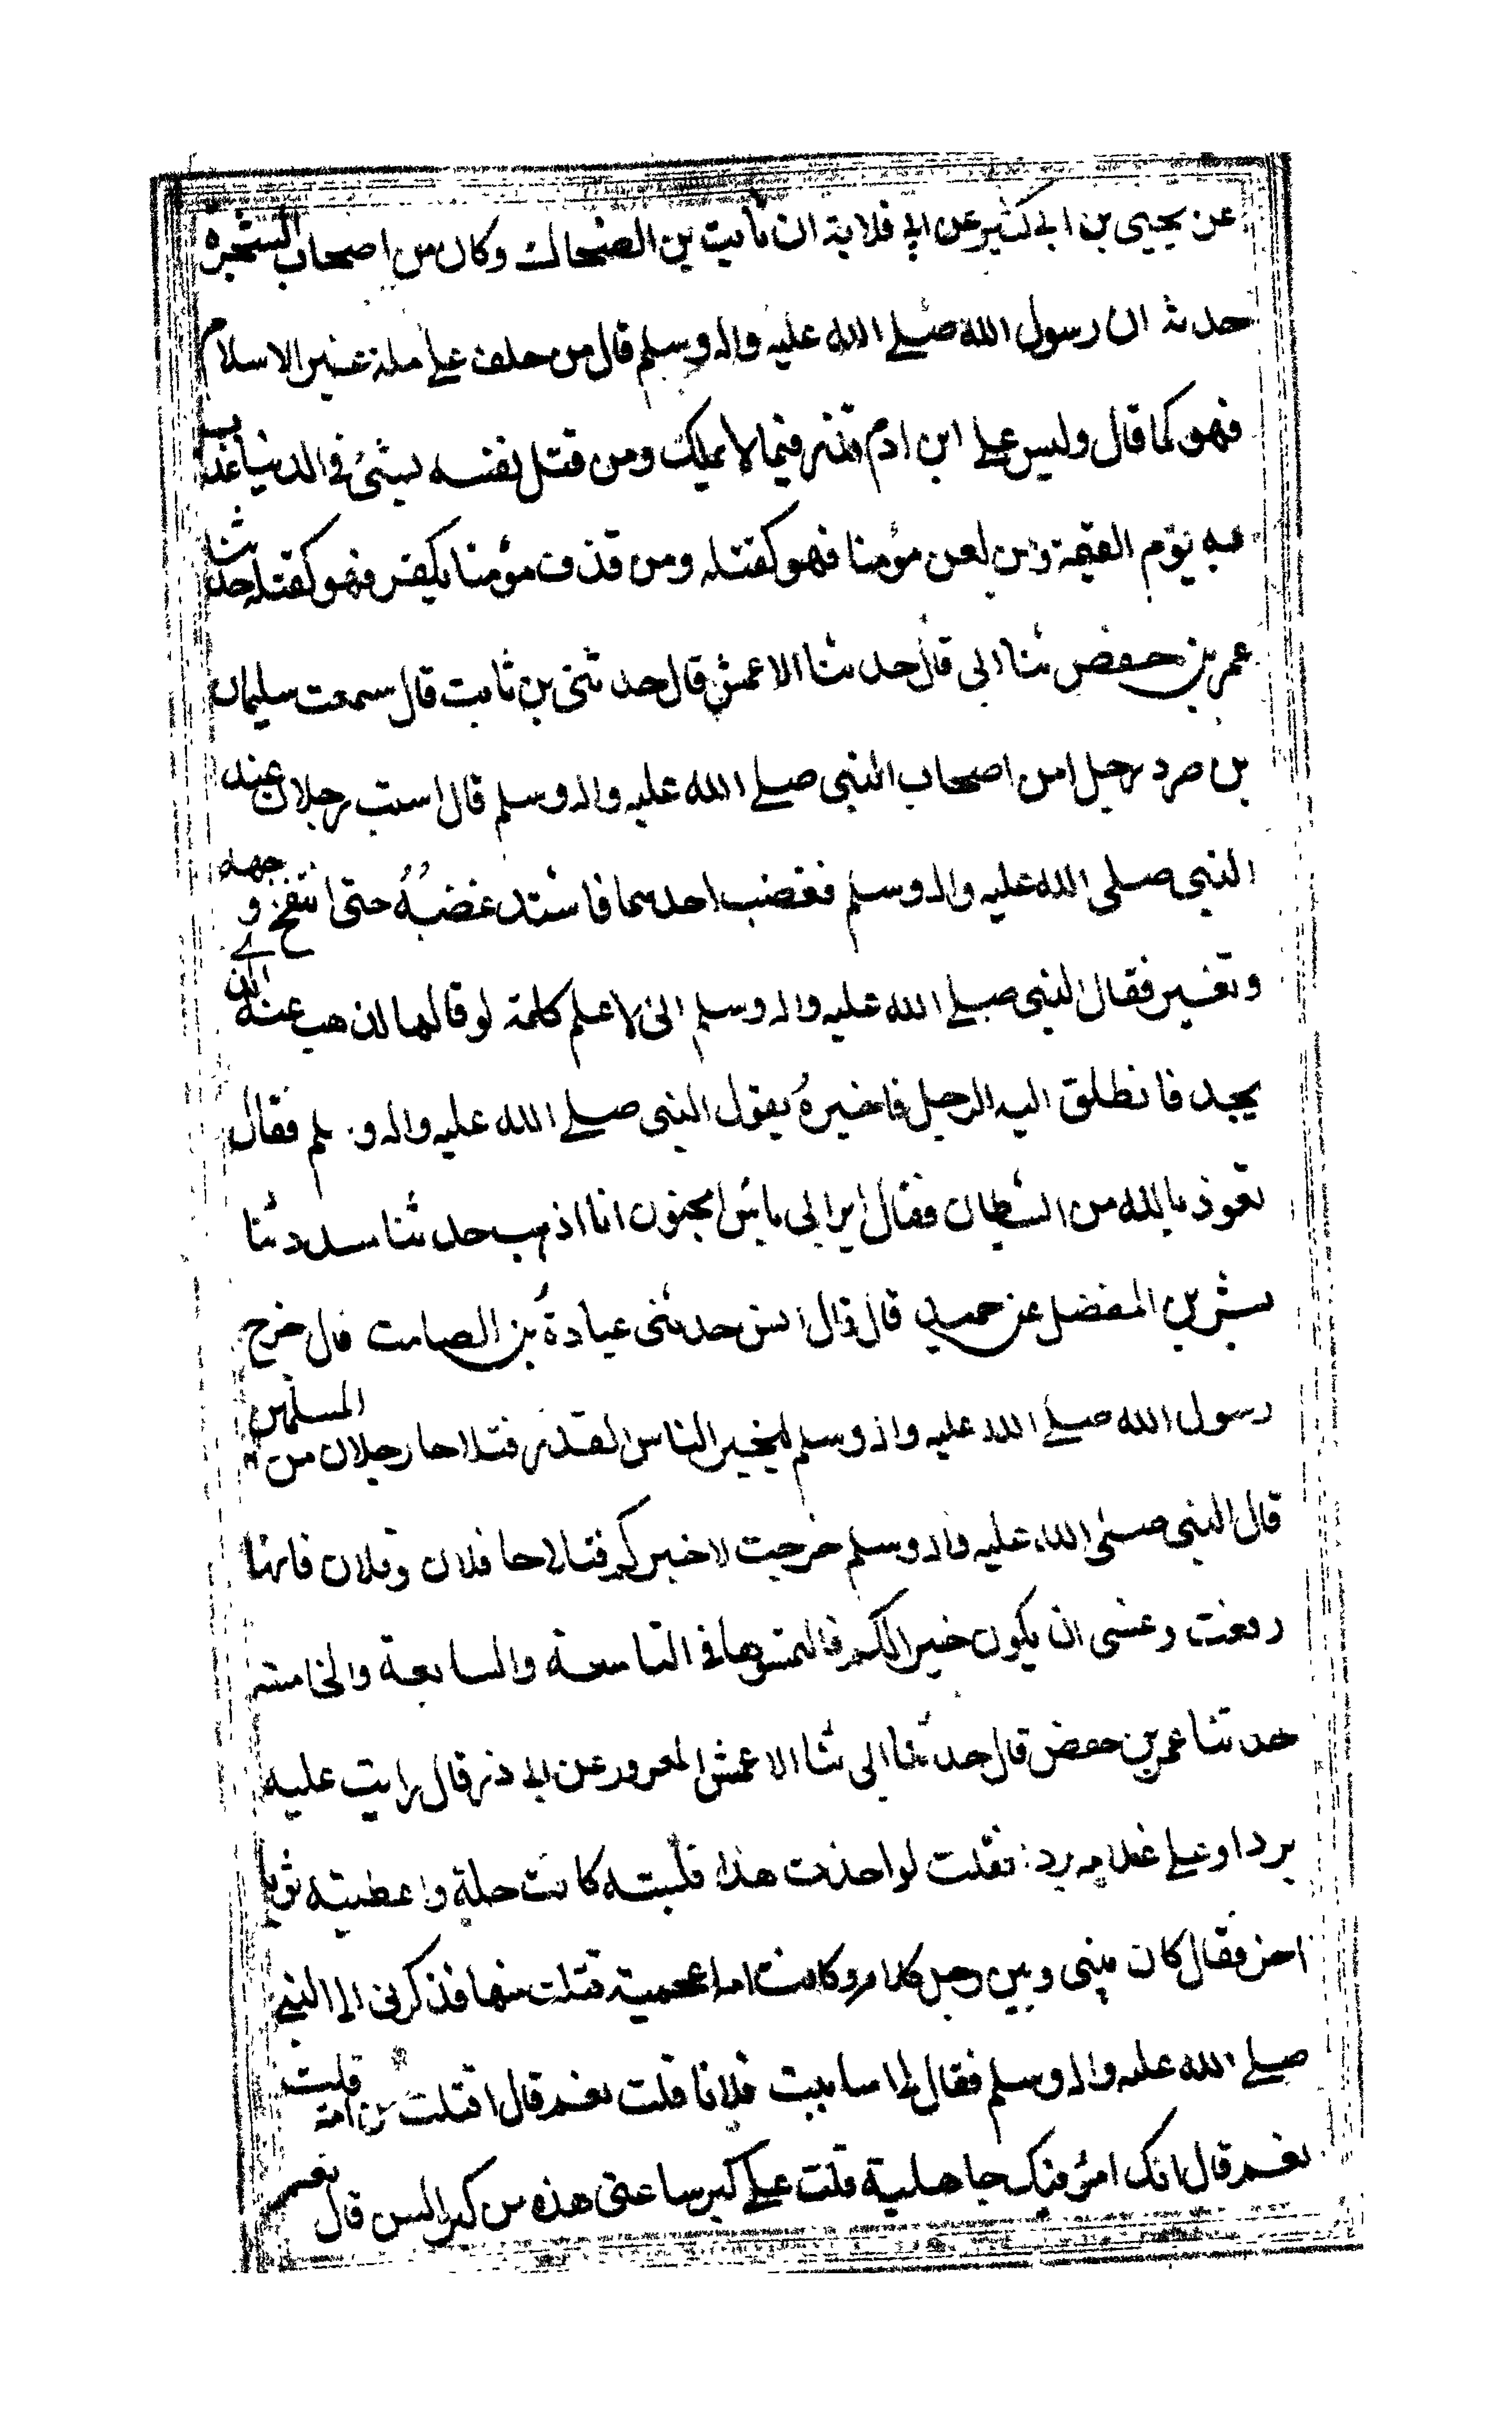 عن يحيى بن ابى كثير عن ابى قلابة ان ثابت بن الضحاك وكان من اصحاب الشجرة
حدثه ان رسول الله صلے الله عليه واله وسلم قال من حلف علے ملة غير الاسلام
فهو كما قال وليس علے ابن ادم نذر فيما لا يملك ومن قتل نفسه بشئ فى الدنيا عذب
به يوم القيمة ومن لعن مؤمنا فهو كقتله ومن قذف مؤمنا بكفر فهو كقتله حدثنا
عمر بن حفص ثنا ابى قال حدثنا الاعمش قال حدثنى بن ثابت قال سمعت سليمان
بن صرد رجلا من اصحاب النبى صلے الله عليه واله وسلم قال استب رجلان عند
النبى صلى الله عليه واله وسلم فغضب احدهما فاشتد غضبُهُ حتى انتفخ وجهه
وتغير فقال النبى صلے الله عليه واله وسلم انى لاعلم كلمة لو قالها لذهب عنه الذى
يجد فانطلق اليه الرجل فاخبرهُ بقول النبى صلے الله عليه واله وسلم فقال
تعوذ بالله من الشيطان فقال اترى بى باس امجنون انا اذهب حدثنا مسدد ثنا
بشر بن المفضل عن حميد قال قال انس حدثنى عبادةُ بن الصامت قال خرج
رسول الله صلے الله عليه واله وسلم ليخبر الناس القدر فتلاحا رجلان من المسلمين
قال النبى صلى الله عليه واله وسلم خرجت لاخبركم فتلاحا فلان وفلان فانها
رفعت وعسى ان يكون خيرا لكم فالتمسوها فى التاسعة والسابعة والخامسة
حدثنا عمر بن حفص قال حدثنا ابى ثنا الاعمش المعرور عن ابى ذر قال رايت عليه
بردا وعلے غلامه بردا فقلت لو اخذت هذا فلبسته كانت حلة واعطيته ثوبا
اخر فقال كان بينى وبين رجل كلام وكانت امه اعجمية فنلت منها فذكرنى الى النبى
صلے الله عليه واله وسلم فقال لى اساببت فلانا قلت نعم قال افنلت من امه قلت
نعم قال انك امرؤ فيك جاهلية قلت علے كبر ساعتى هذه من كبر السن قال نعم